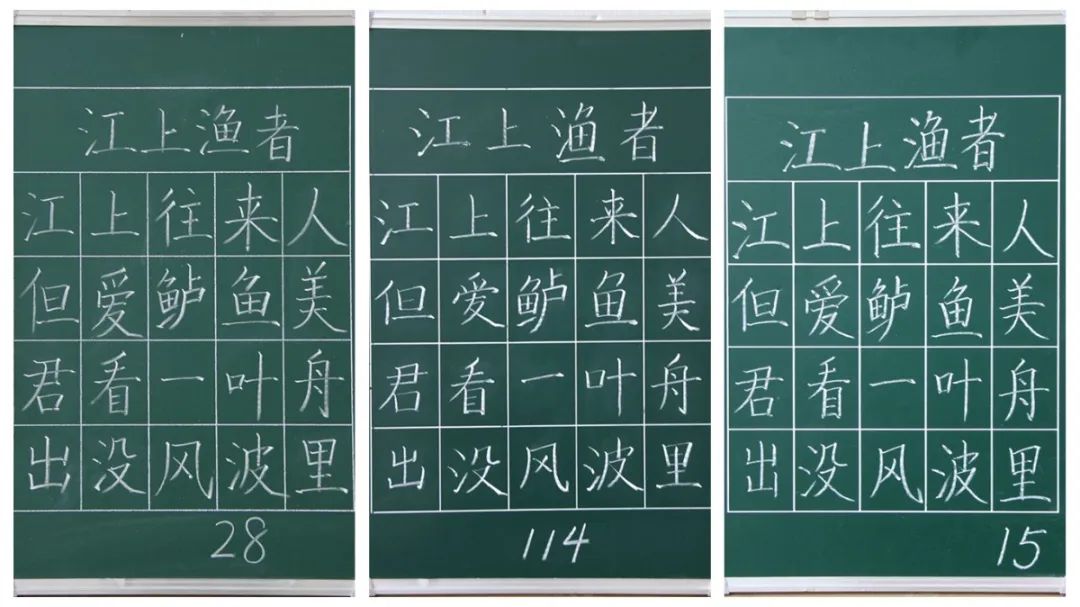 江上渔者
江上往来人
但爱鲈鱼美
君看一叶舟
出没风波里
28
江上渔者
江上往来人
但爱鲈鱼美
君看一叶舟
出没风波里
114
江上渔者
江上往来人
但爱鲈鱼美
君看一叶舟
出没风波里
15